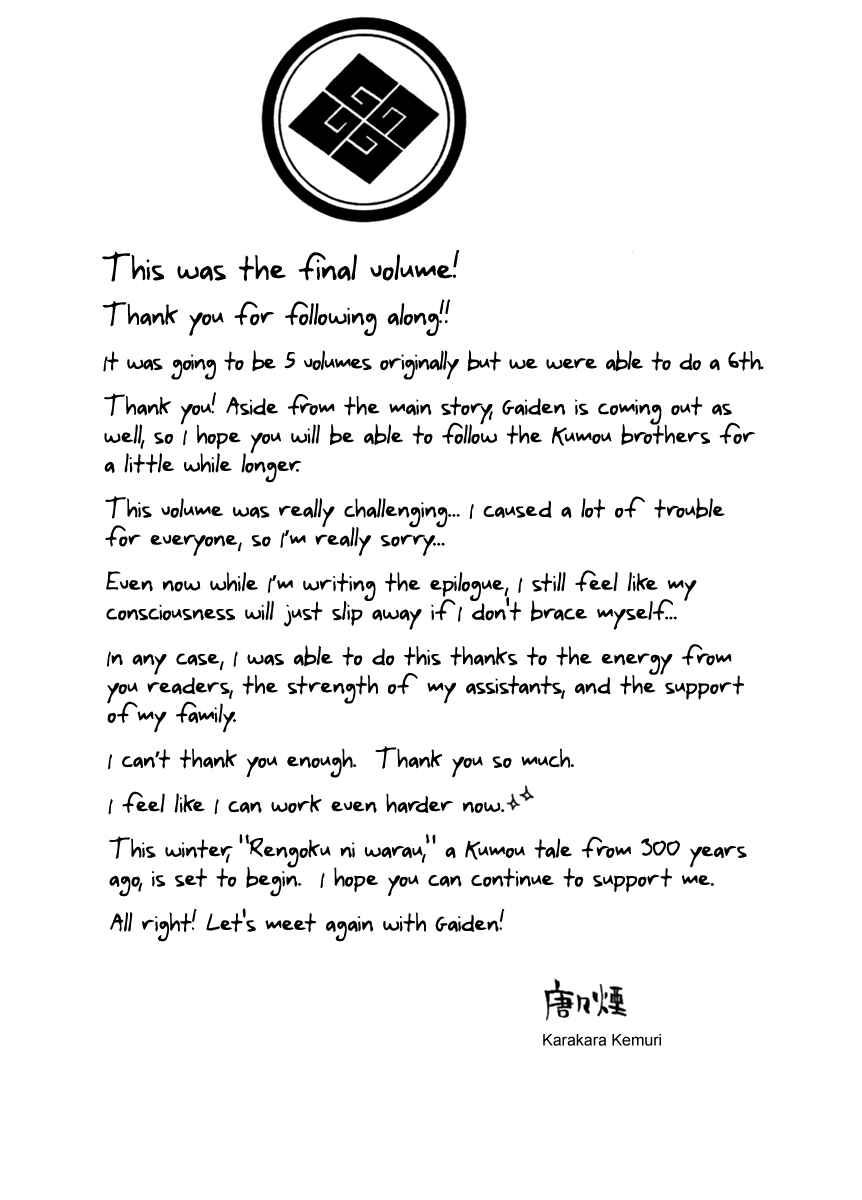 This was the final volume!
Thank you for following along!!
It was going to be 5 volumes originally but we were able to do a 6th.
Thank you! Aside from the main story, Gaiden is coming out as
well, so I hope you will be able to follow the Kumou brothers for
a little while longer.
This volume was really challenging... I caused a lot of trouble
for everyone, so I'm really sorry...
Even now while I'm writing the epilogue, I still feel like my
consciousness will just slip away if I don't brace myself...
In any case, I was able to do this thanks to the energy from
you readers, the strength of my assistants, and the support
of my family.
I can't thank you enough. Thank you so much.
I feel like I can work even harder now.
This winter, "Rengoku ni warau," a Kumou tale from 300 years
ago, is set to begin. I hope you can continue to support me.
All right! Let's meet again with Gaiden!
唐々煙
Karakara Kemuri